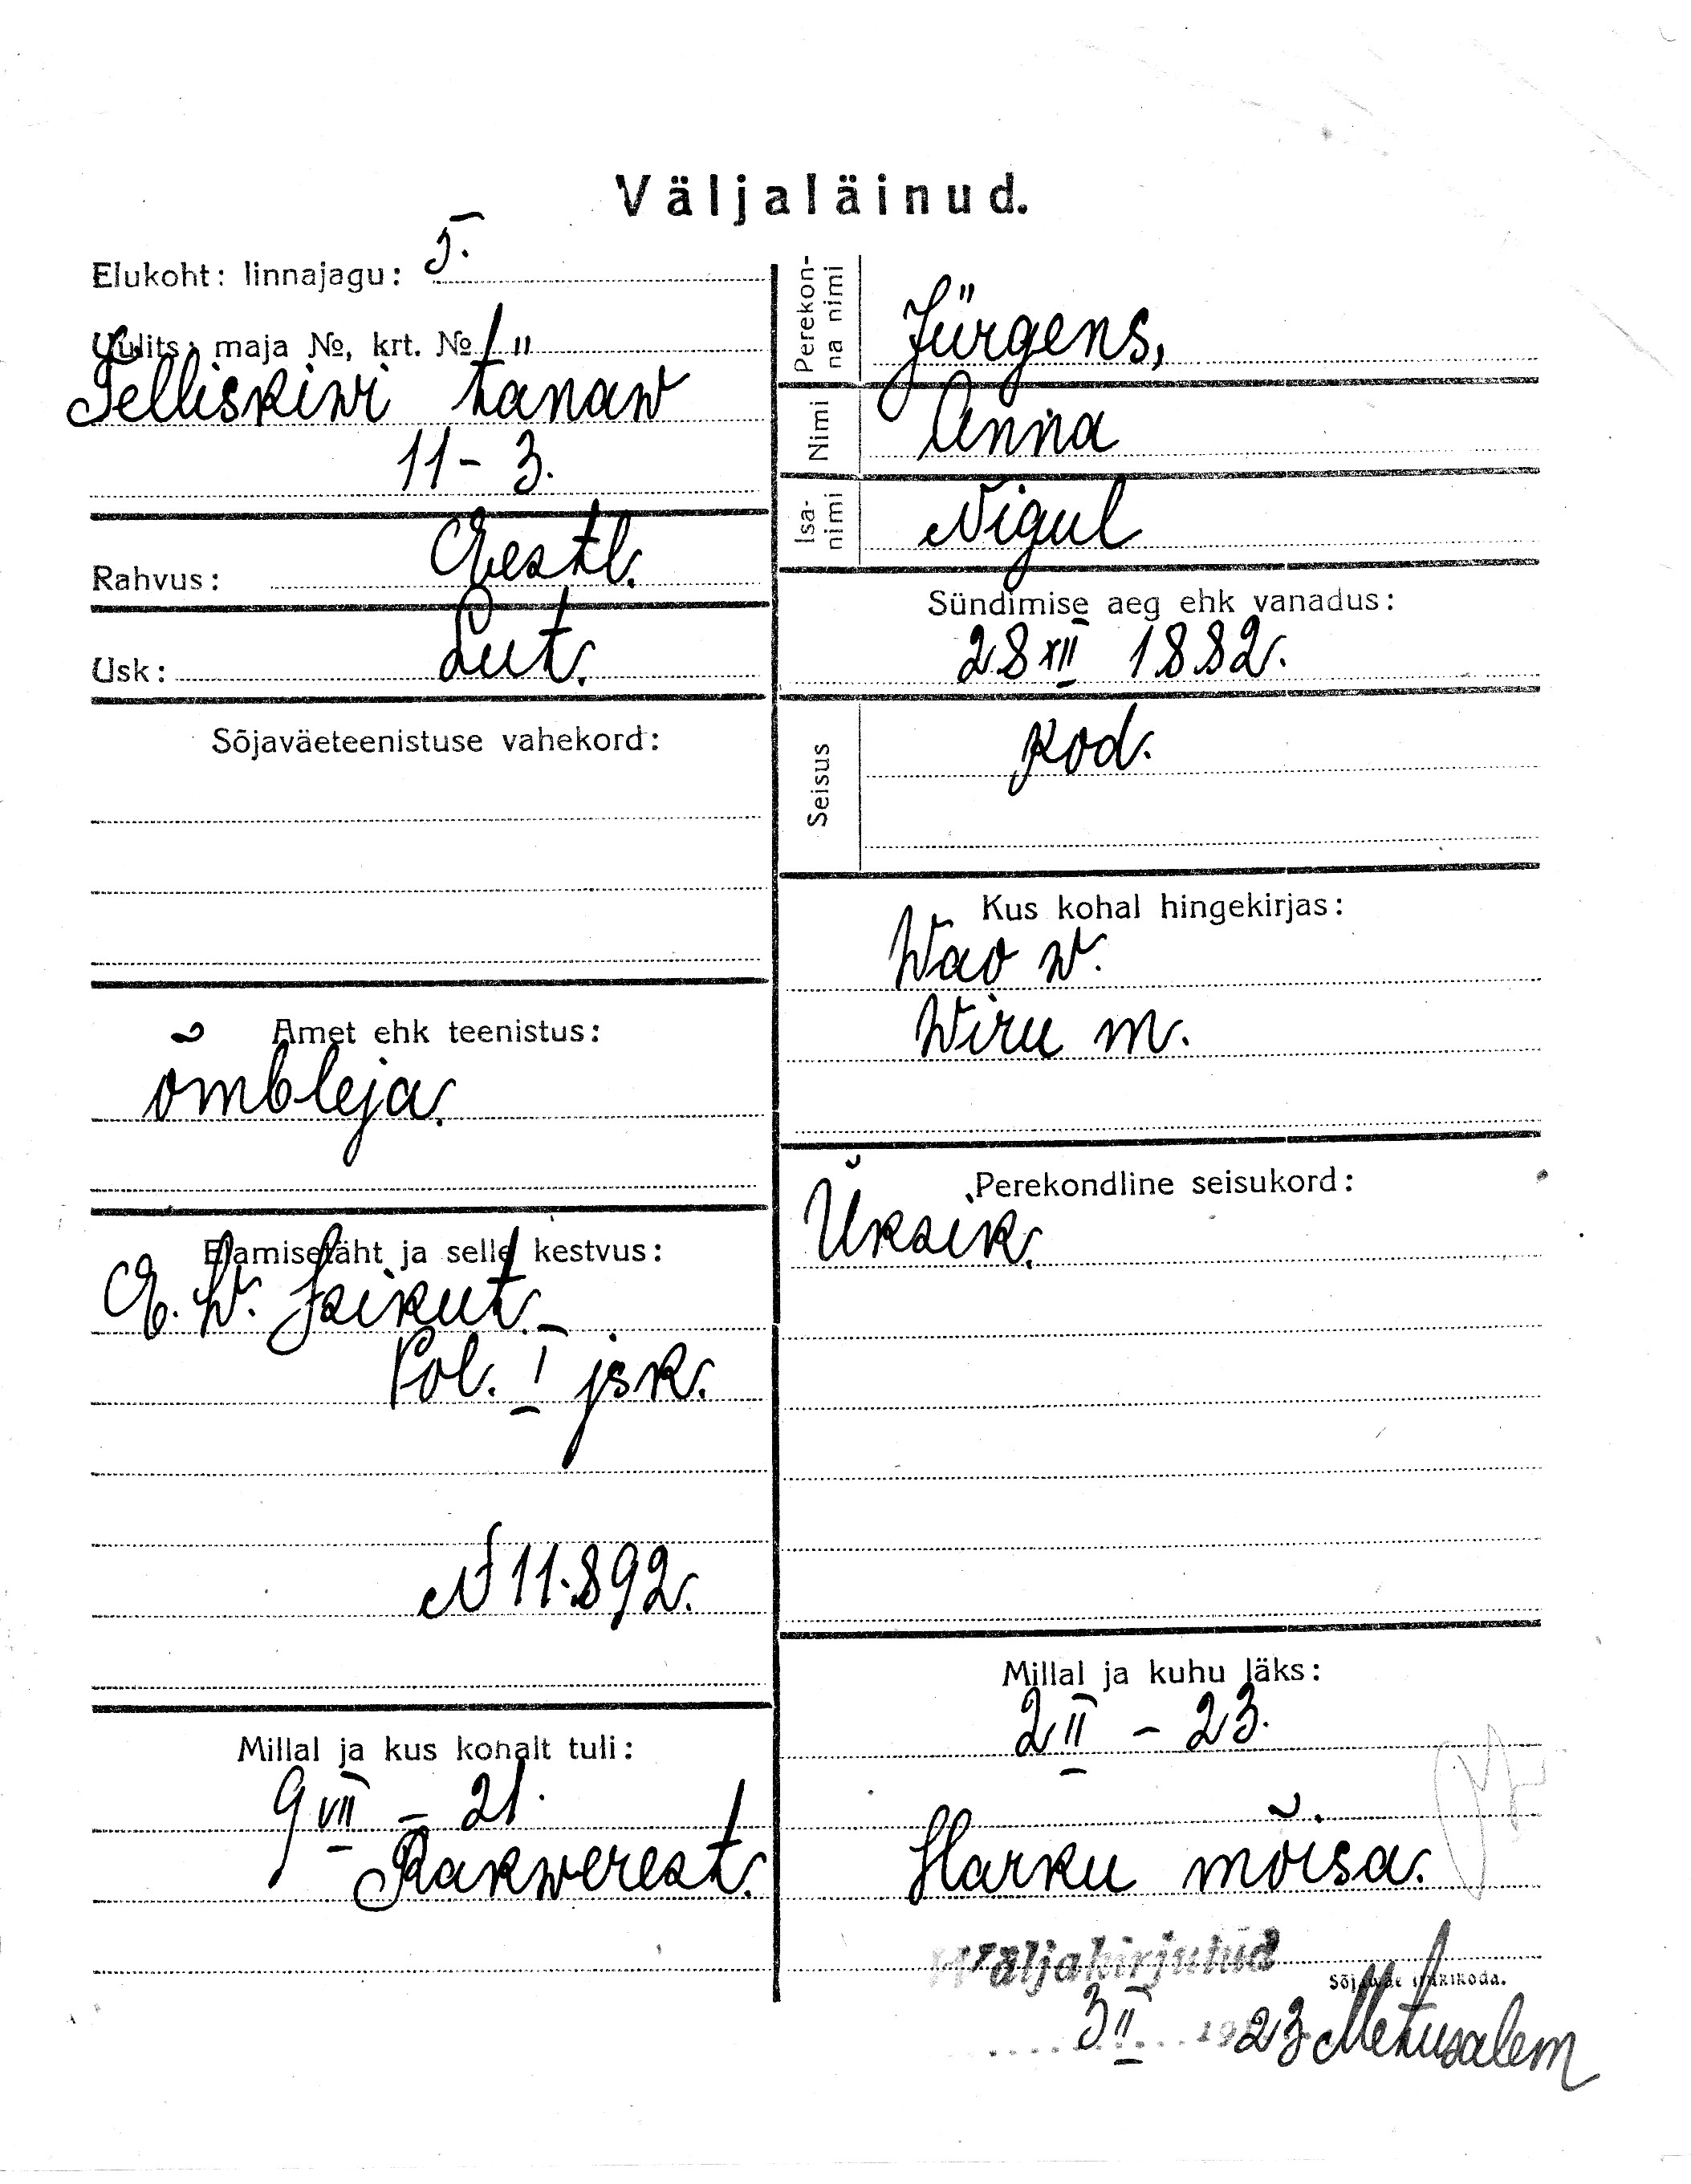 Väljaläinud.
Elukoht: linnajagu: 5.
Uulits, maja №, krt. №
Telliskiwi tänaw
11 - 3.
Rahvus: Eestl.
Usk: Lut.
Sõjaväeteenistuse vahekord:
Amet ehk teenistus:
õmbleja.
Elamisetäht ja selle kestvus:
E. W. Isikut.
Pol. I jsk.
N 11.892.
Millal ja kus kohalt tuli:
9 VII - 21.
Rakwerest.
Perekonna nimi Jürgens,
Nimi Anna
Isanimi Nigul
Sündimise aeg ehk vanadus:
28 XII 1882.
Seisus kod.
Kus kohal hingekirjas:
Wao w.
Wiru m.
Perekondline seisukord:
Üksik.
Millal ja kuhu läks:
2 II - 23.
Harku mõisa.
Wäljakirjutud
Sõjawäe trükikoda.
3 II 1923 Metusalem